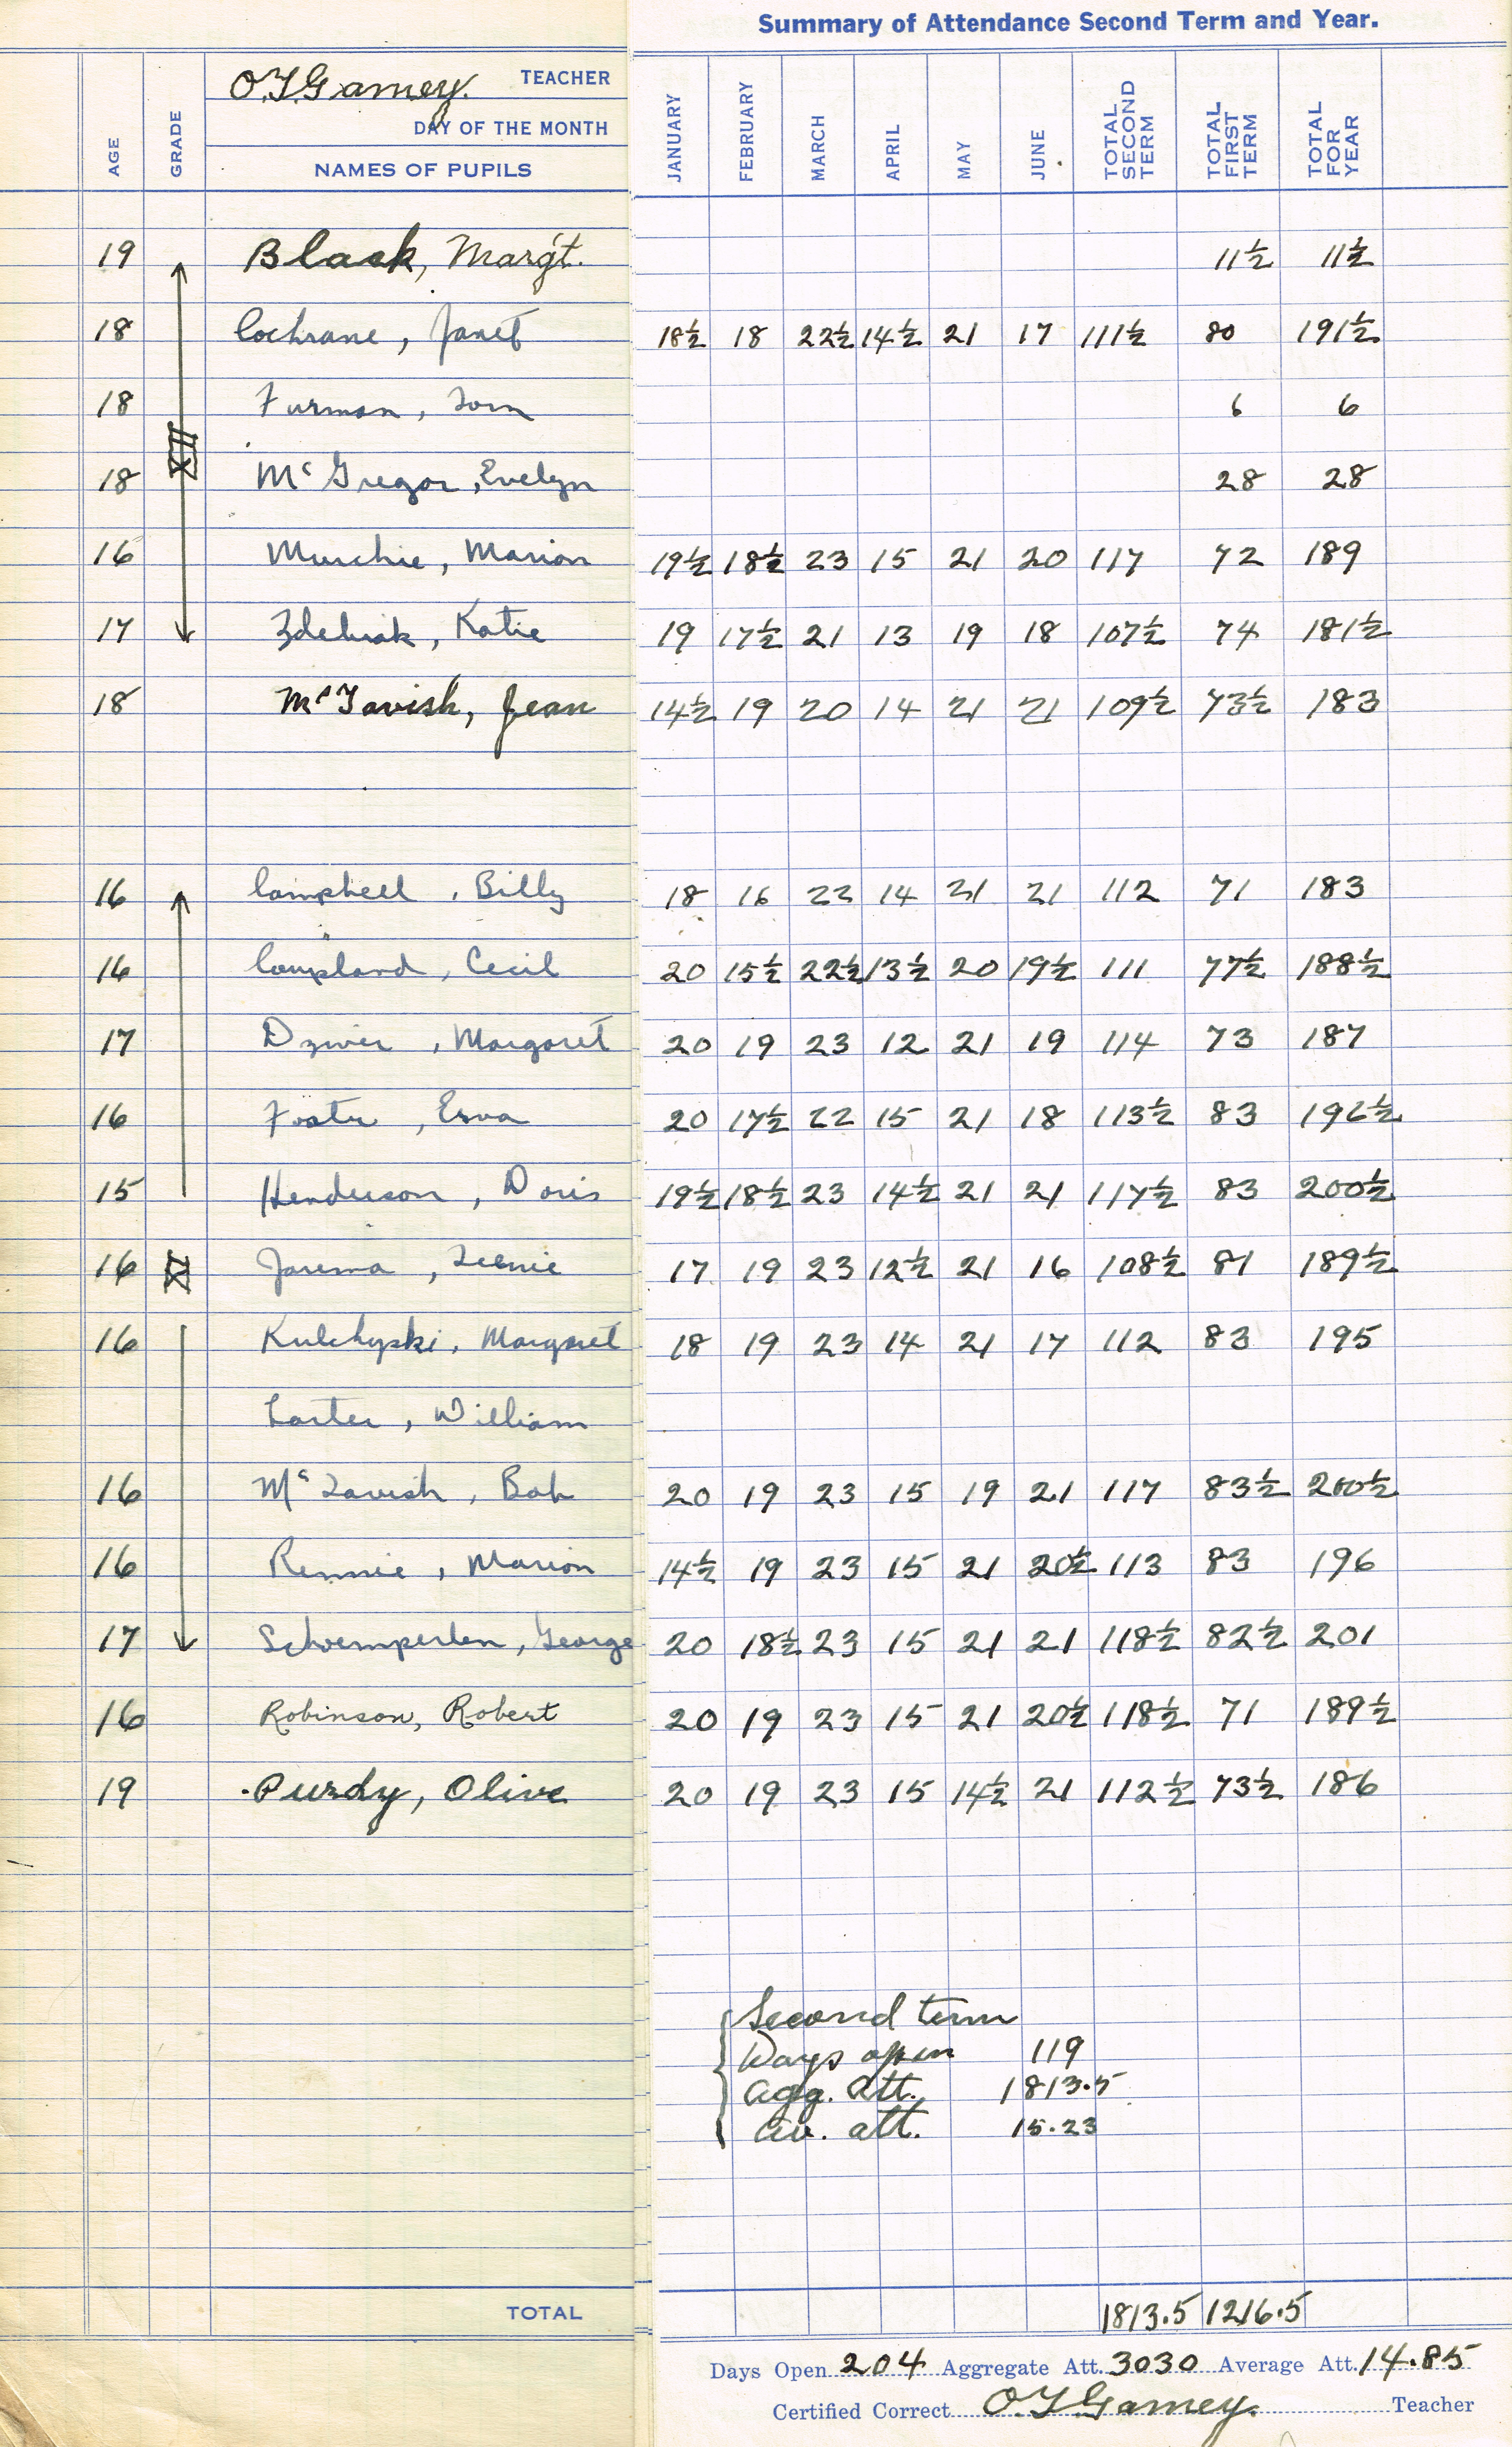 Summary of Attendance Second Term and Year.
O.T.Garney. TEACHER
DAY OF THE MONTH
AGE GRADE NAMES OF PUPILS JANUARY FEBRUARY MARCH APRIL MAY JUNE TOTAL SECOND TERM TOTAL FIRST TERM TOTAL FOR YEAR
19 Black, Marg't. 11½ 11½
18 Cochrane, Janet 18½ 18 22½ 14½ 21 17 111½ 80 191½
18 Furman, Tom 6 6
XII
18 McGregor, Evelyn 28 28
16 Murchie, Marion 19½ 18½ 23 15 21 20 117 72 189
17 Zdebiak, Katie 19 17½ 21 13 19 18 107½ 74 181½
18 McTavish, Jean 14½ 19 20 14 21 21 109½ 73½ 183
16 Campbell, Billy 18 16 22 14 21 21 112 71 183
16 Coupland, Cecil 20 15½ 22½ 13½ 20 19½ 111 77½ 188½
17 Dzwir, Margaret 20 19 23 12 21 19 114 73 187
16 Foster, Erva 20 17½ 22 15 21 18 113½ 83 196½
15 Henderson, Doris 19½ 18½ 23 14½ 21 21 117½ 83 200½
16 XI Jarema, 17 19 23 12½ 21 16 108½ 81 189½
16 Kulchyski, Margaret 18 19 23 14 21 17 112 83 195
Larter, William
16 McTavish, Bob 20 19 23 15 19 21 117 83½ 200½
16 Rennie, Marion 14½ 19 23 15 21 20½ 113 83 196
17 Schoemperlen, George 20 18½ 23 15 21 21 118½ 82½ 201
16 Robinson, Robert 20 19 23 15 21 20½ 118½ 71 189½
19 Purdy, Olive 20 19 23 15 14½ 21 112½ 73½ 186
Second term
Days open 119
Agg. Att. 1813.5
Av. att. 15.23
TOTAL 1813.5 1216.5
Days Open 204 Aggregate Att. 3030 Average Att. 14.85
Certified Correct O.T.Garney. Teacher